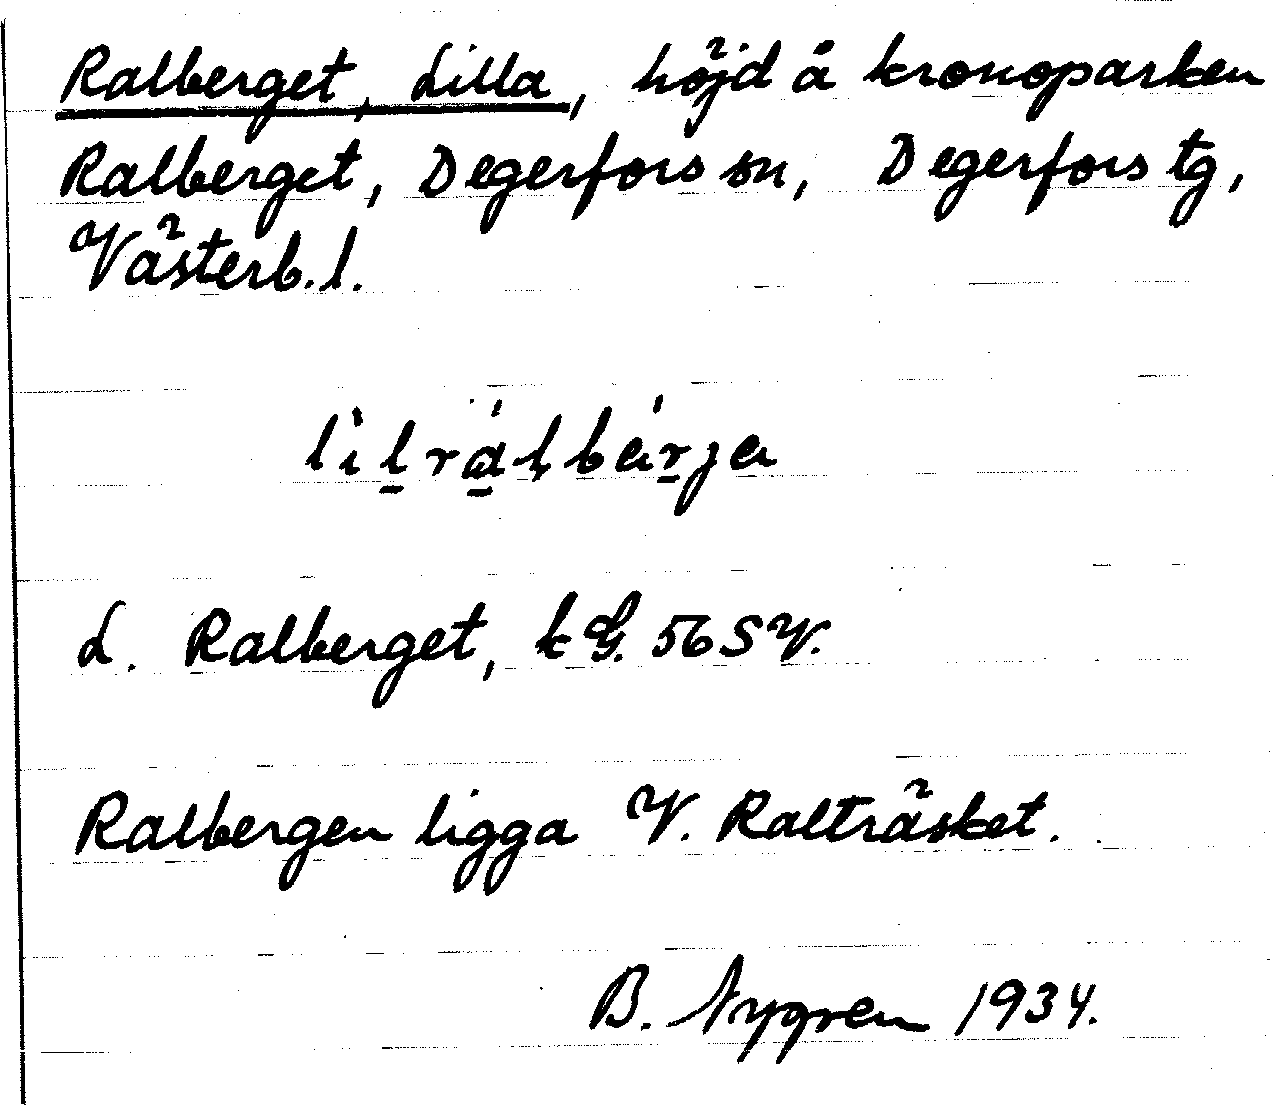 Ralberget, Lilla, höjd å kronoparken
Ralberget, Degerfors sn, Degerfors tg,
Västerb. l.
L. Ralberget, k G. 56 SV.
Ralbergen ligga V. Ralträsket.
B. Nygren 1934.